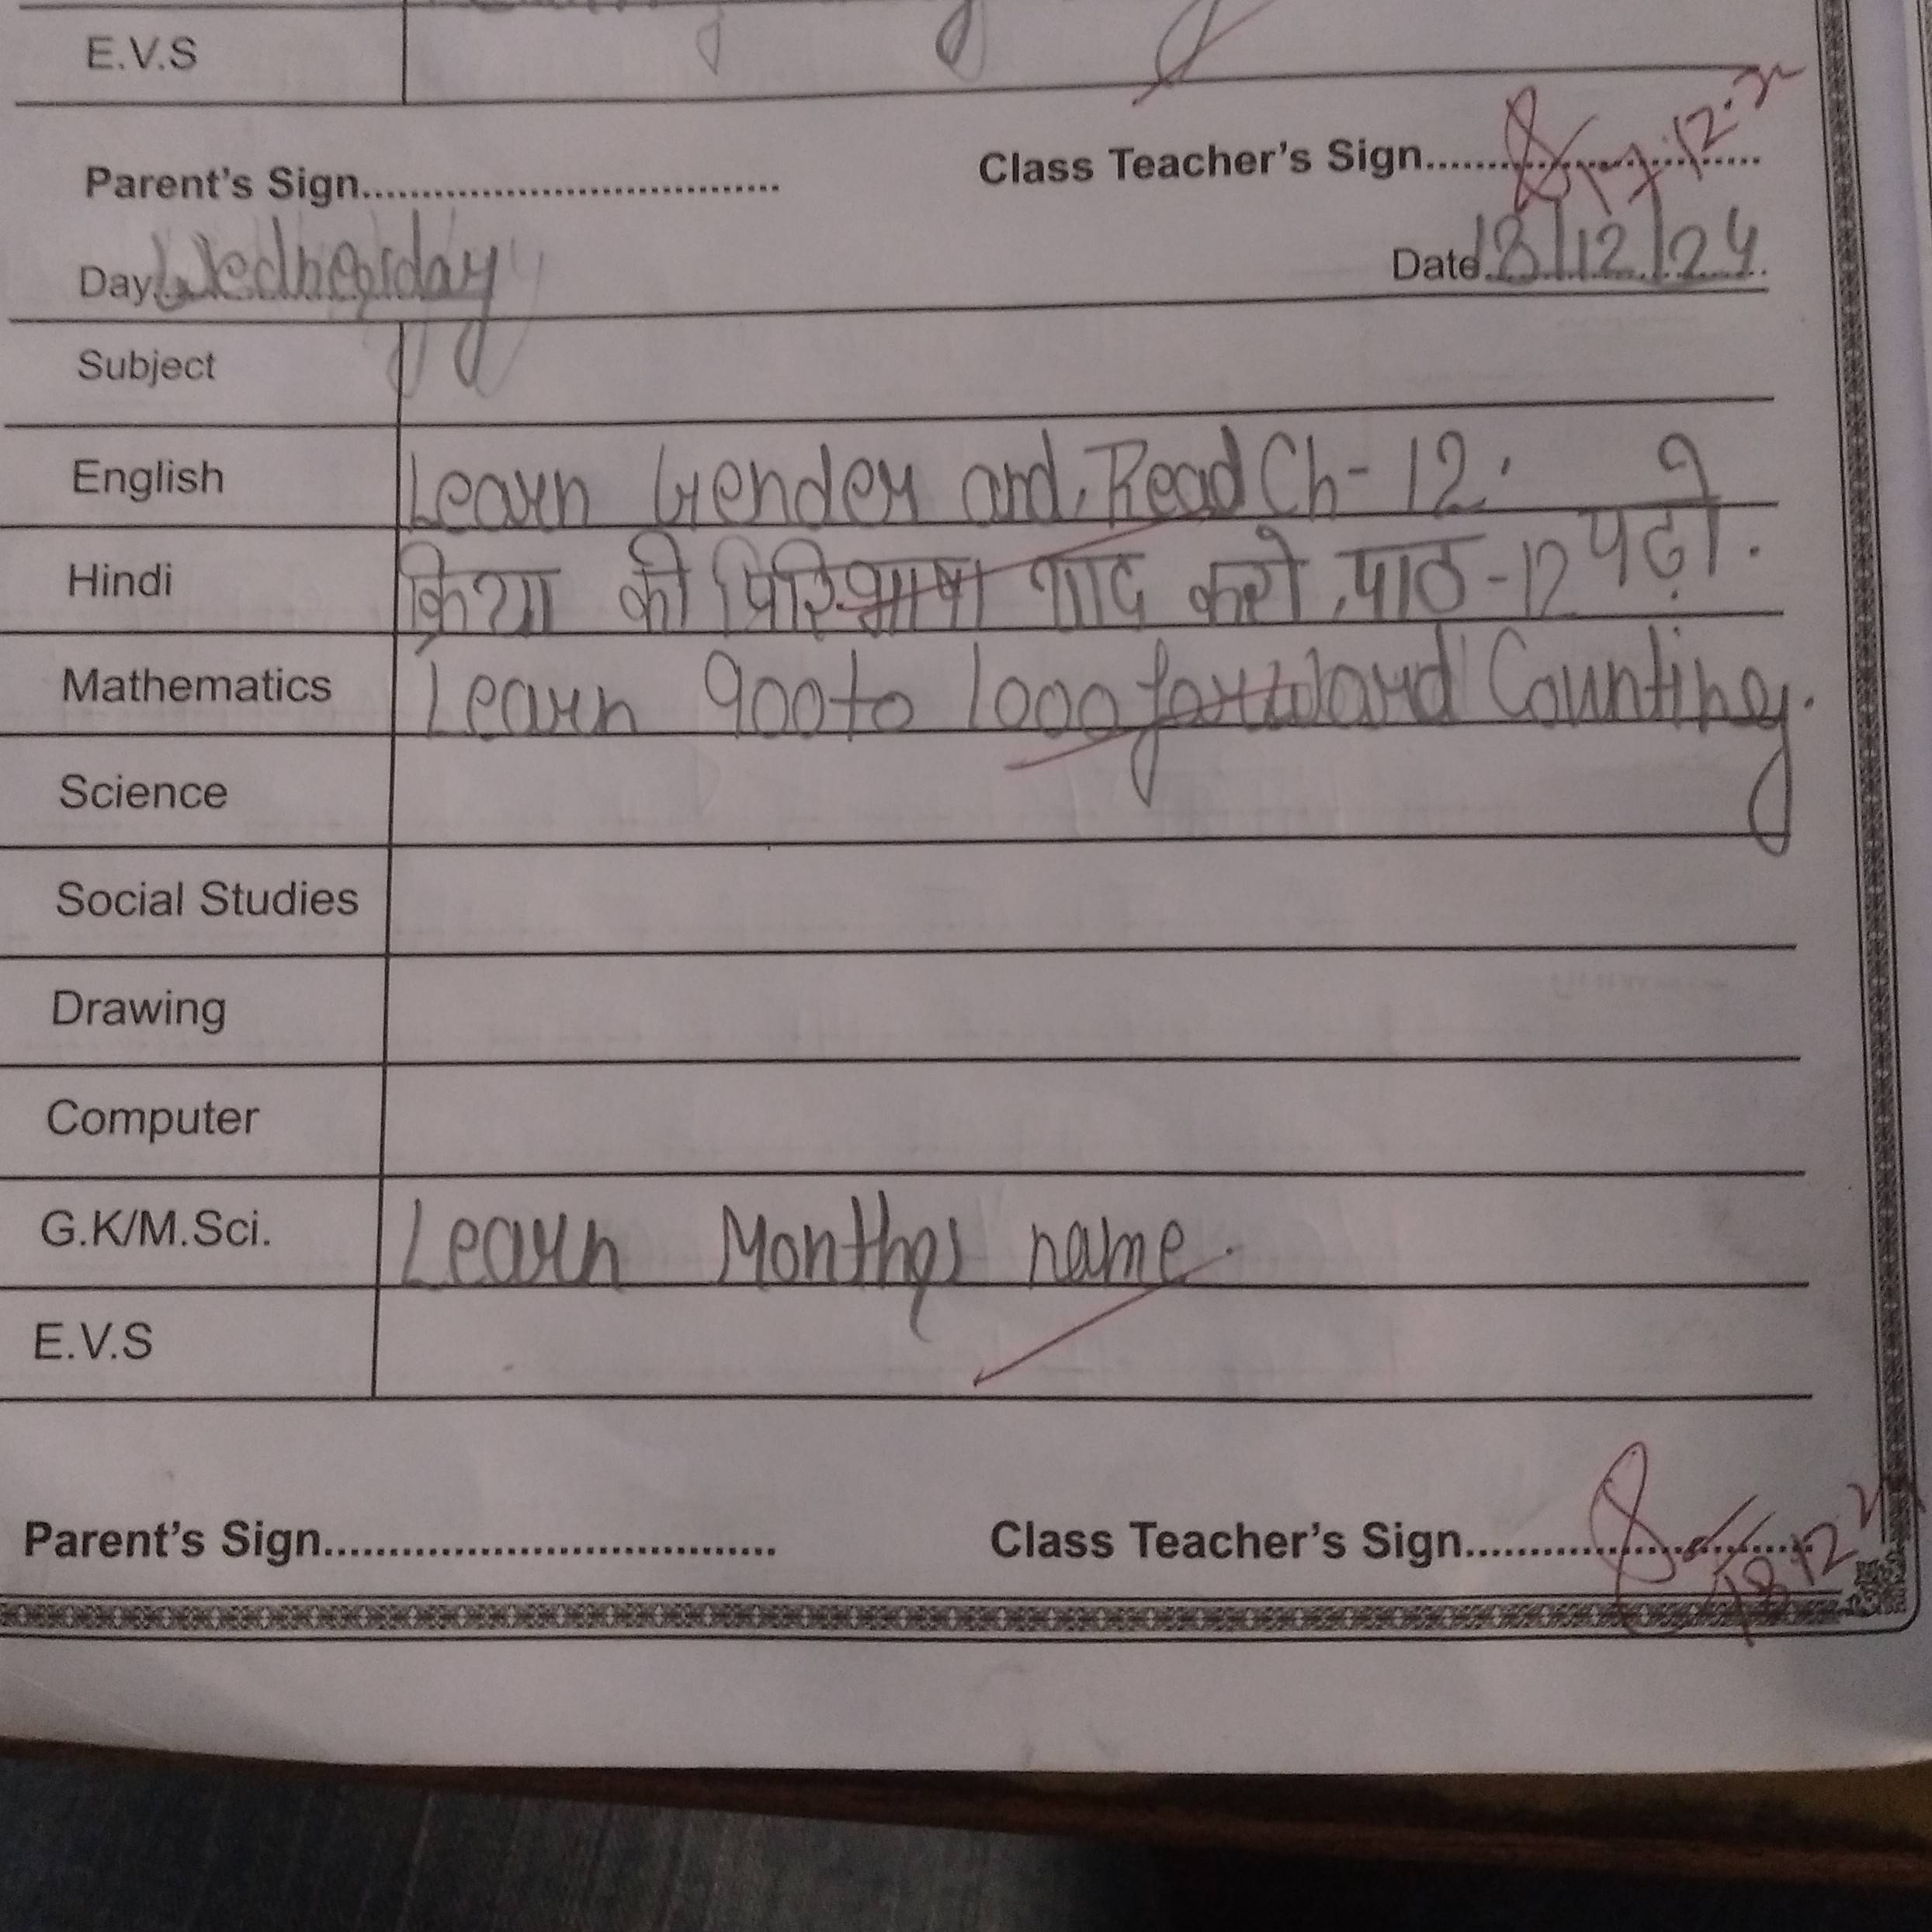 E.V.S
Parent's Sign................................... Class Teacher's Sign............................ 17.12.
Day Wednesday Date 18/12/24
Subject
English Learn Gender and, Read Ch-12.
Hindi क्रिया की परिभाषा याद करो, पाठ-12 पढ़ो.
Mathematics Learn 900 to 1000 forward Counting.
Science
Social Studies
Drawing
Computer
G.K/M.Sci. Learn Months name.
E.V.S
Parent's Sign................................... Class Teacher's Sign............................ 18.12